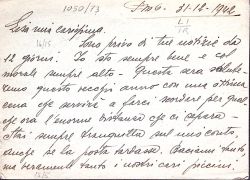 1050/13 P.M. 31-12-1942
LI
1R
Lisa mia carissima.
16/15 Sono privo di tue notizie da
12 giorni. Io sto sempre bene e col
morale sempre alto - Questa sera
remo questo recapi anno con una
cena che servirà a farci per qual
che ora l'enorme distanza che ci separa -
Stai sempre tranquilla sul mio conto,
anche se la posta tardasse. Baciami tanto
ma veramente tanto i nostri cari piccini.